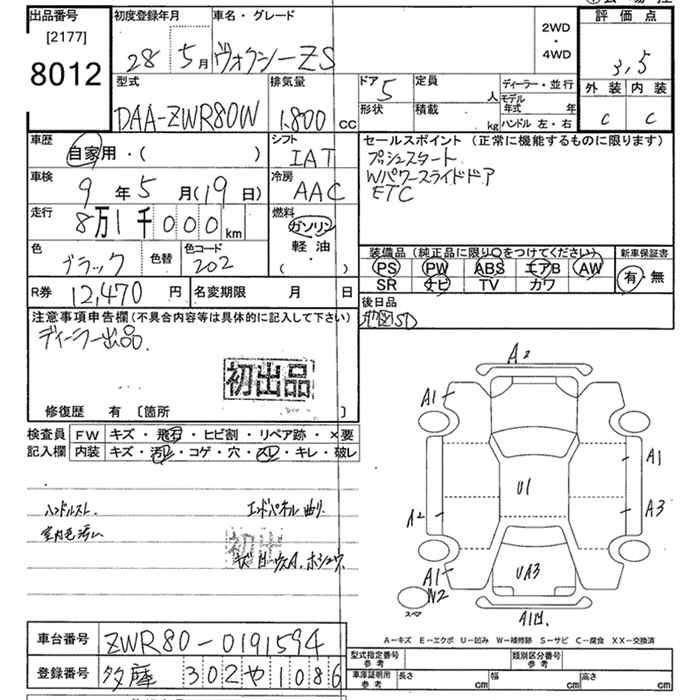 出品番号 初度登録年月 車名・グレード
[2177] 8012
28 5月 ヴォクシーZS
2WD・4WD
評価点 3.5
型式 排気量 ドア 5 定員 人 ディーラー・並行
DAA-ZWR80W 1,800 cc
形状 積載 kg モデル年式 年
ハンドル 左・右
外装 内装
C C
車歴 自家用・( )
シフト IAT
セールスポイント (正常に機能するものに限ります)
プッシュスタート
Wパワースライドドア
ETC
車検 9年5月(19日)
冷房 AAC
走行 8万1千000km
燃料 ガソリン 軽油 ( )
色 ブラック 色替 色コード 202
装備品(純正品に限り○をつけてください) 新車保証書
PS PW ABS エアB AW 有・無
SR ナビ TV カワ
R券 12,470円 名変期限 月 日
後日品
地図SD
注意事項申告欄(不具合内容等は具体的に記入して下さい)
ディーラー出品.
初出品
修復歴 有 [箇所 ]
検査員 FW キズ・飛石・ヒビ割・リペア跡・×要
記入欄 内装 キズ・汚レ・コゲ・穴・スレ・キレ・破レ
ハンドルスレ. エンドパネル曲り.
室内毛汚レ
A2
A1
A1
U1
A2 A3
A1 UA3
W2
スペア
A1凹.
A−キズ E−エクボ U−凹み W−補修跡 S−サビ C−腐食 XX−交換済
車台番号 ZWR80-0191594
登録番号 多摩 302 や 1086
型式指定番号 参考 類別区分番号 参考
車庫証明用 参考 長さ cm 幅 cm 高さ cm